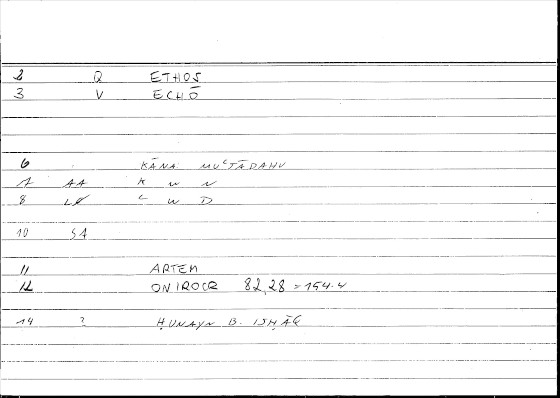 2 Q ETHOS
3 V ECHŌ
6 KĀNA MUʿTĀDAHU
7 AA K W N
8 ʿ W D
10 SA
11 ARTEM
12 ONIROCR 82,28 = 154.4
14 ? ḤUNAYN B. ISḤĀQ